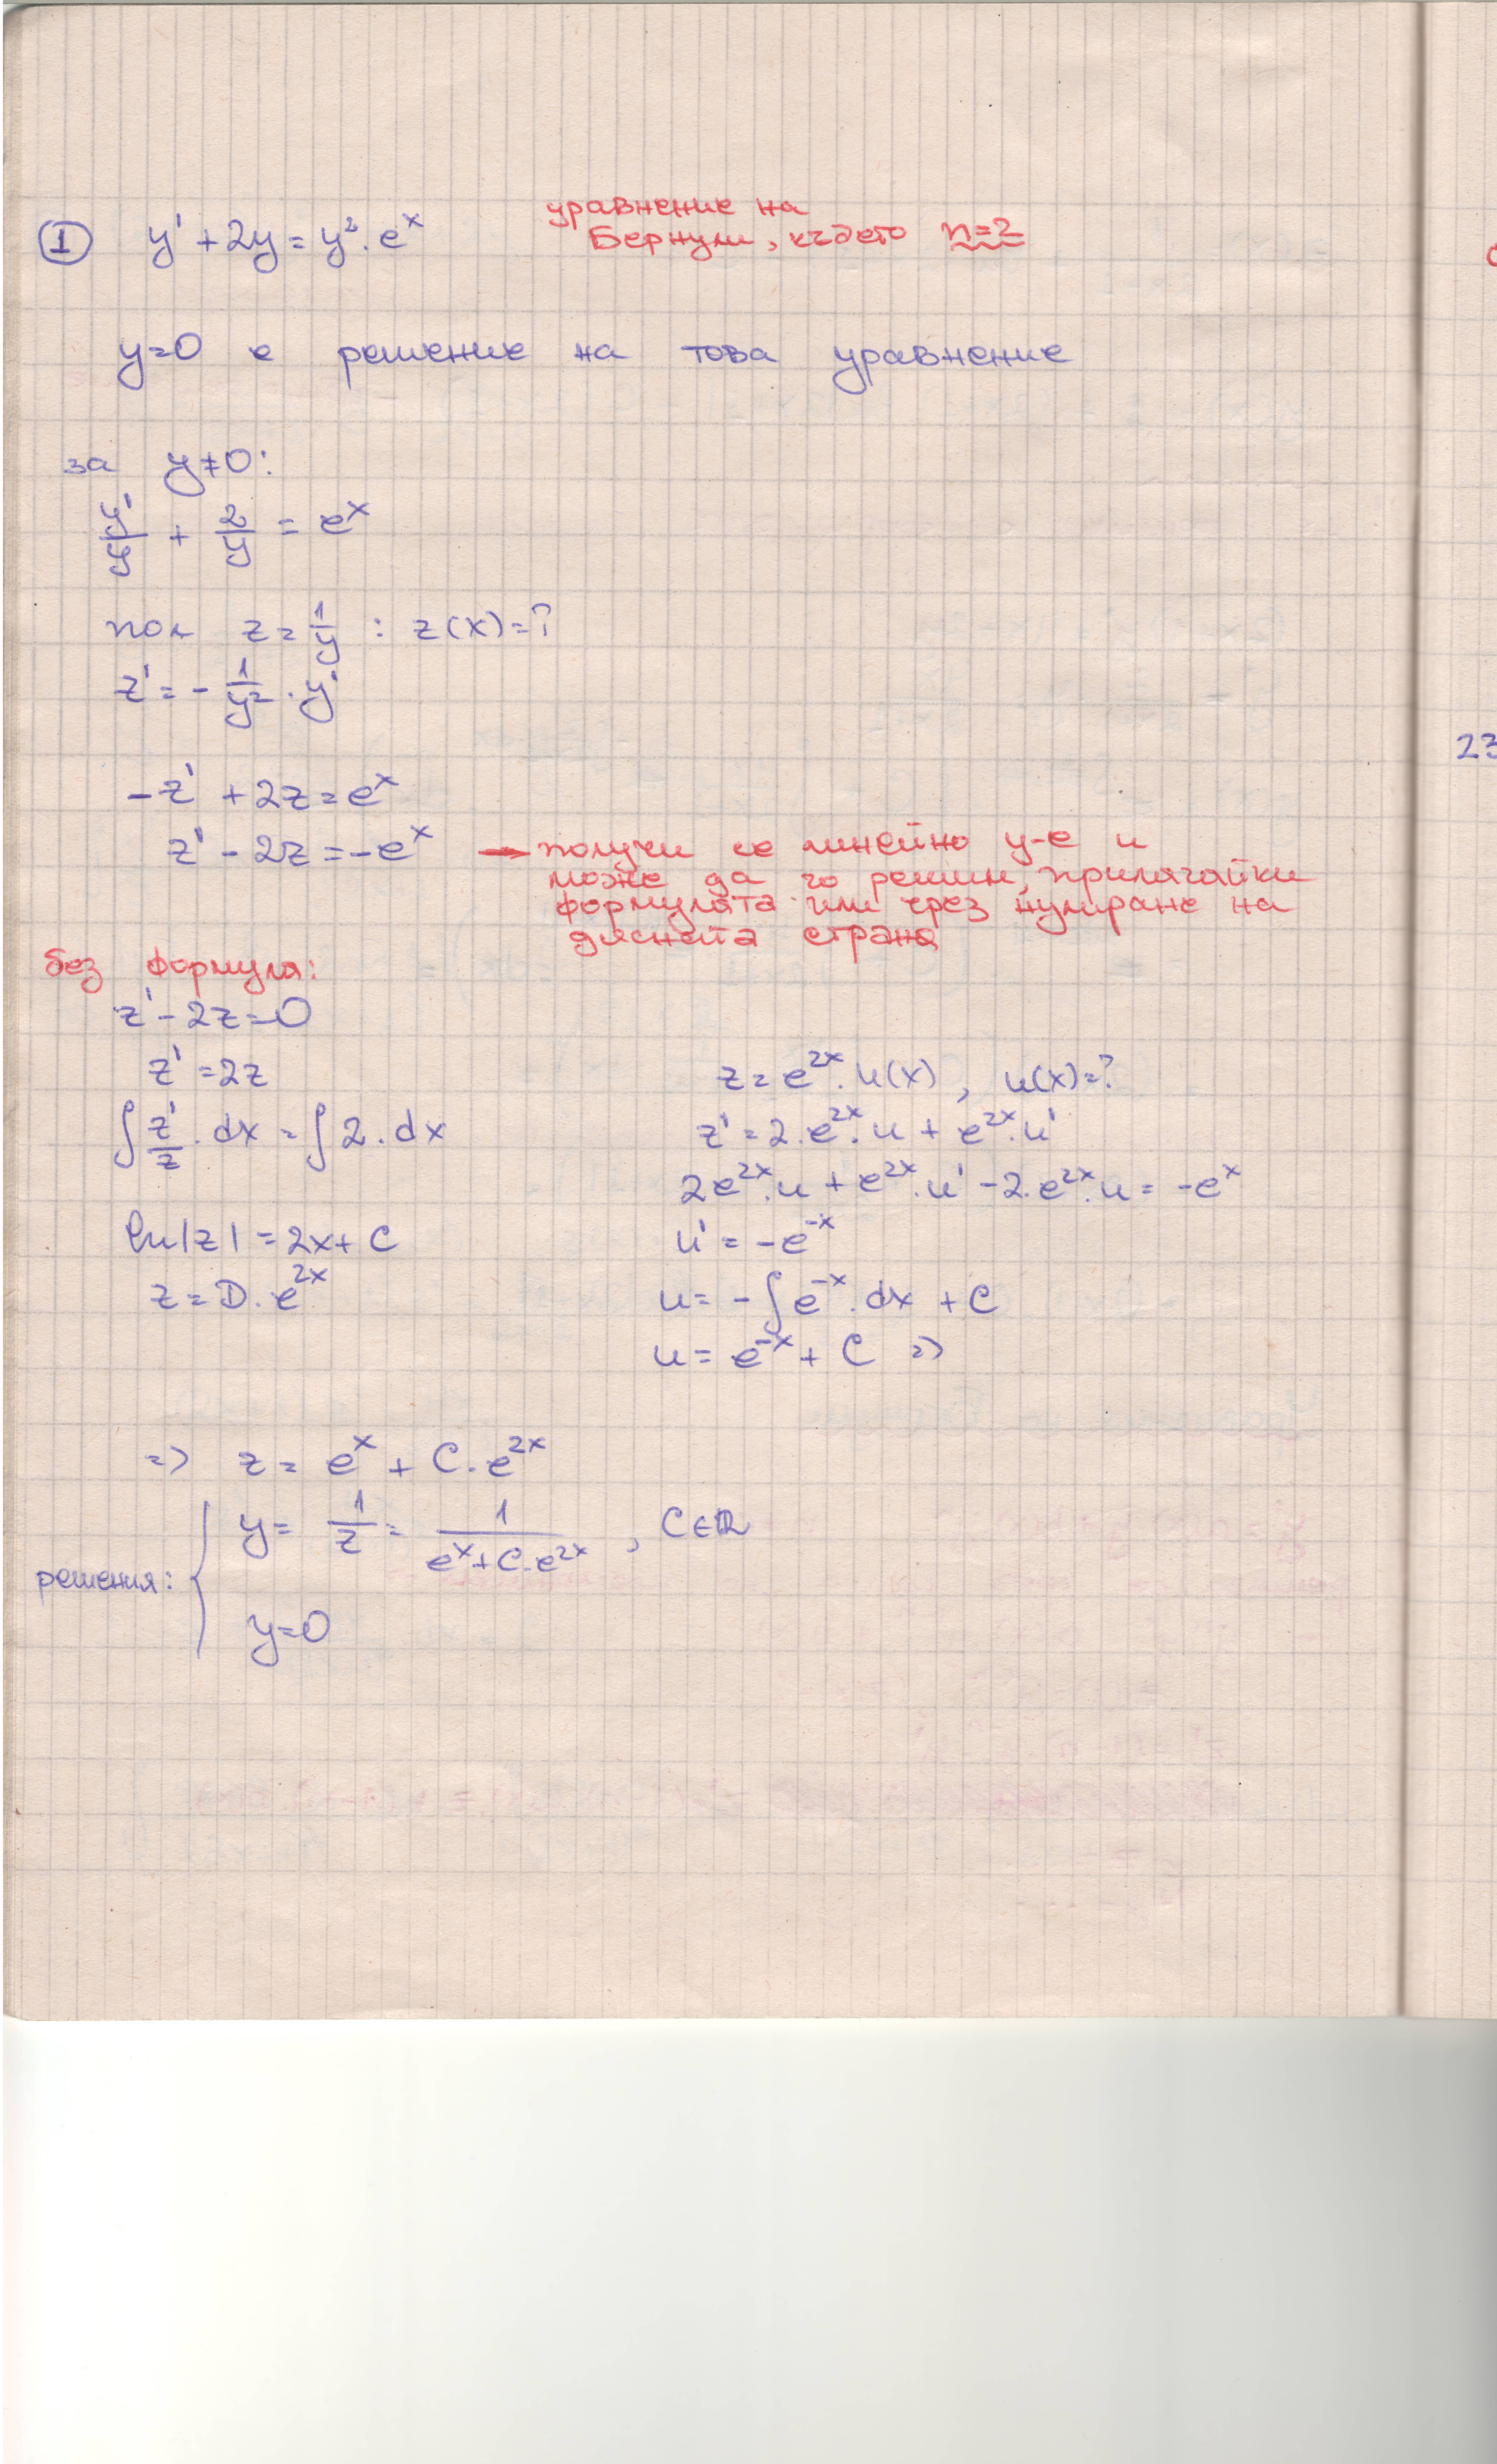 ① y' + 2y = y². eˣ
уравнение на
Бернули, където n=2
y=0 е решение на това уравнение
за y≠0:
y'/y² + 2/y = eˣ
пол z = 1/y : z(x)=?
z' = - 1/y² . y'
-z' + 2z = eˣ
z' - 2z = -eˣ → получи се линейно у-е и
може да го решим, прилагайки
формулата или чрез нулиране на
дясната страна
без формула:
z' - 2z = 0
z' = 2z
∫ z'/z . dx = ∫ 2 . dx
ln|z| = 2x + C
z = D . e²ˣ
z = e²ˣ . u(x) , u(x)=?
z' = 2.e²ˣ.u + e²ˣ.u'
2e²ˣ.u + e²ˣ.u' - 2.e²ˣ.u = -eˣ
u' = -e⁻ˣ
u = - ∫ e⁻ˣ.dx + C
u = e⁻ˣ + C =>
=> z = eˣ + C.e²ˣ
решения: { y = 1/z = 1/(eˣ + C.e²ˣ) , C∈R
y=0
23